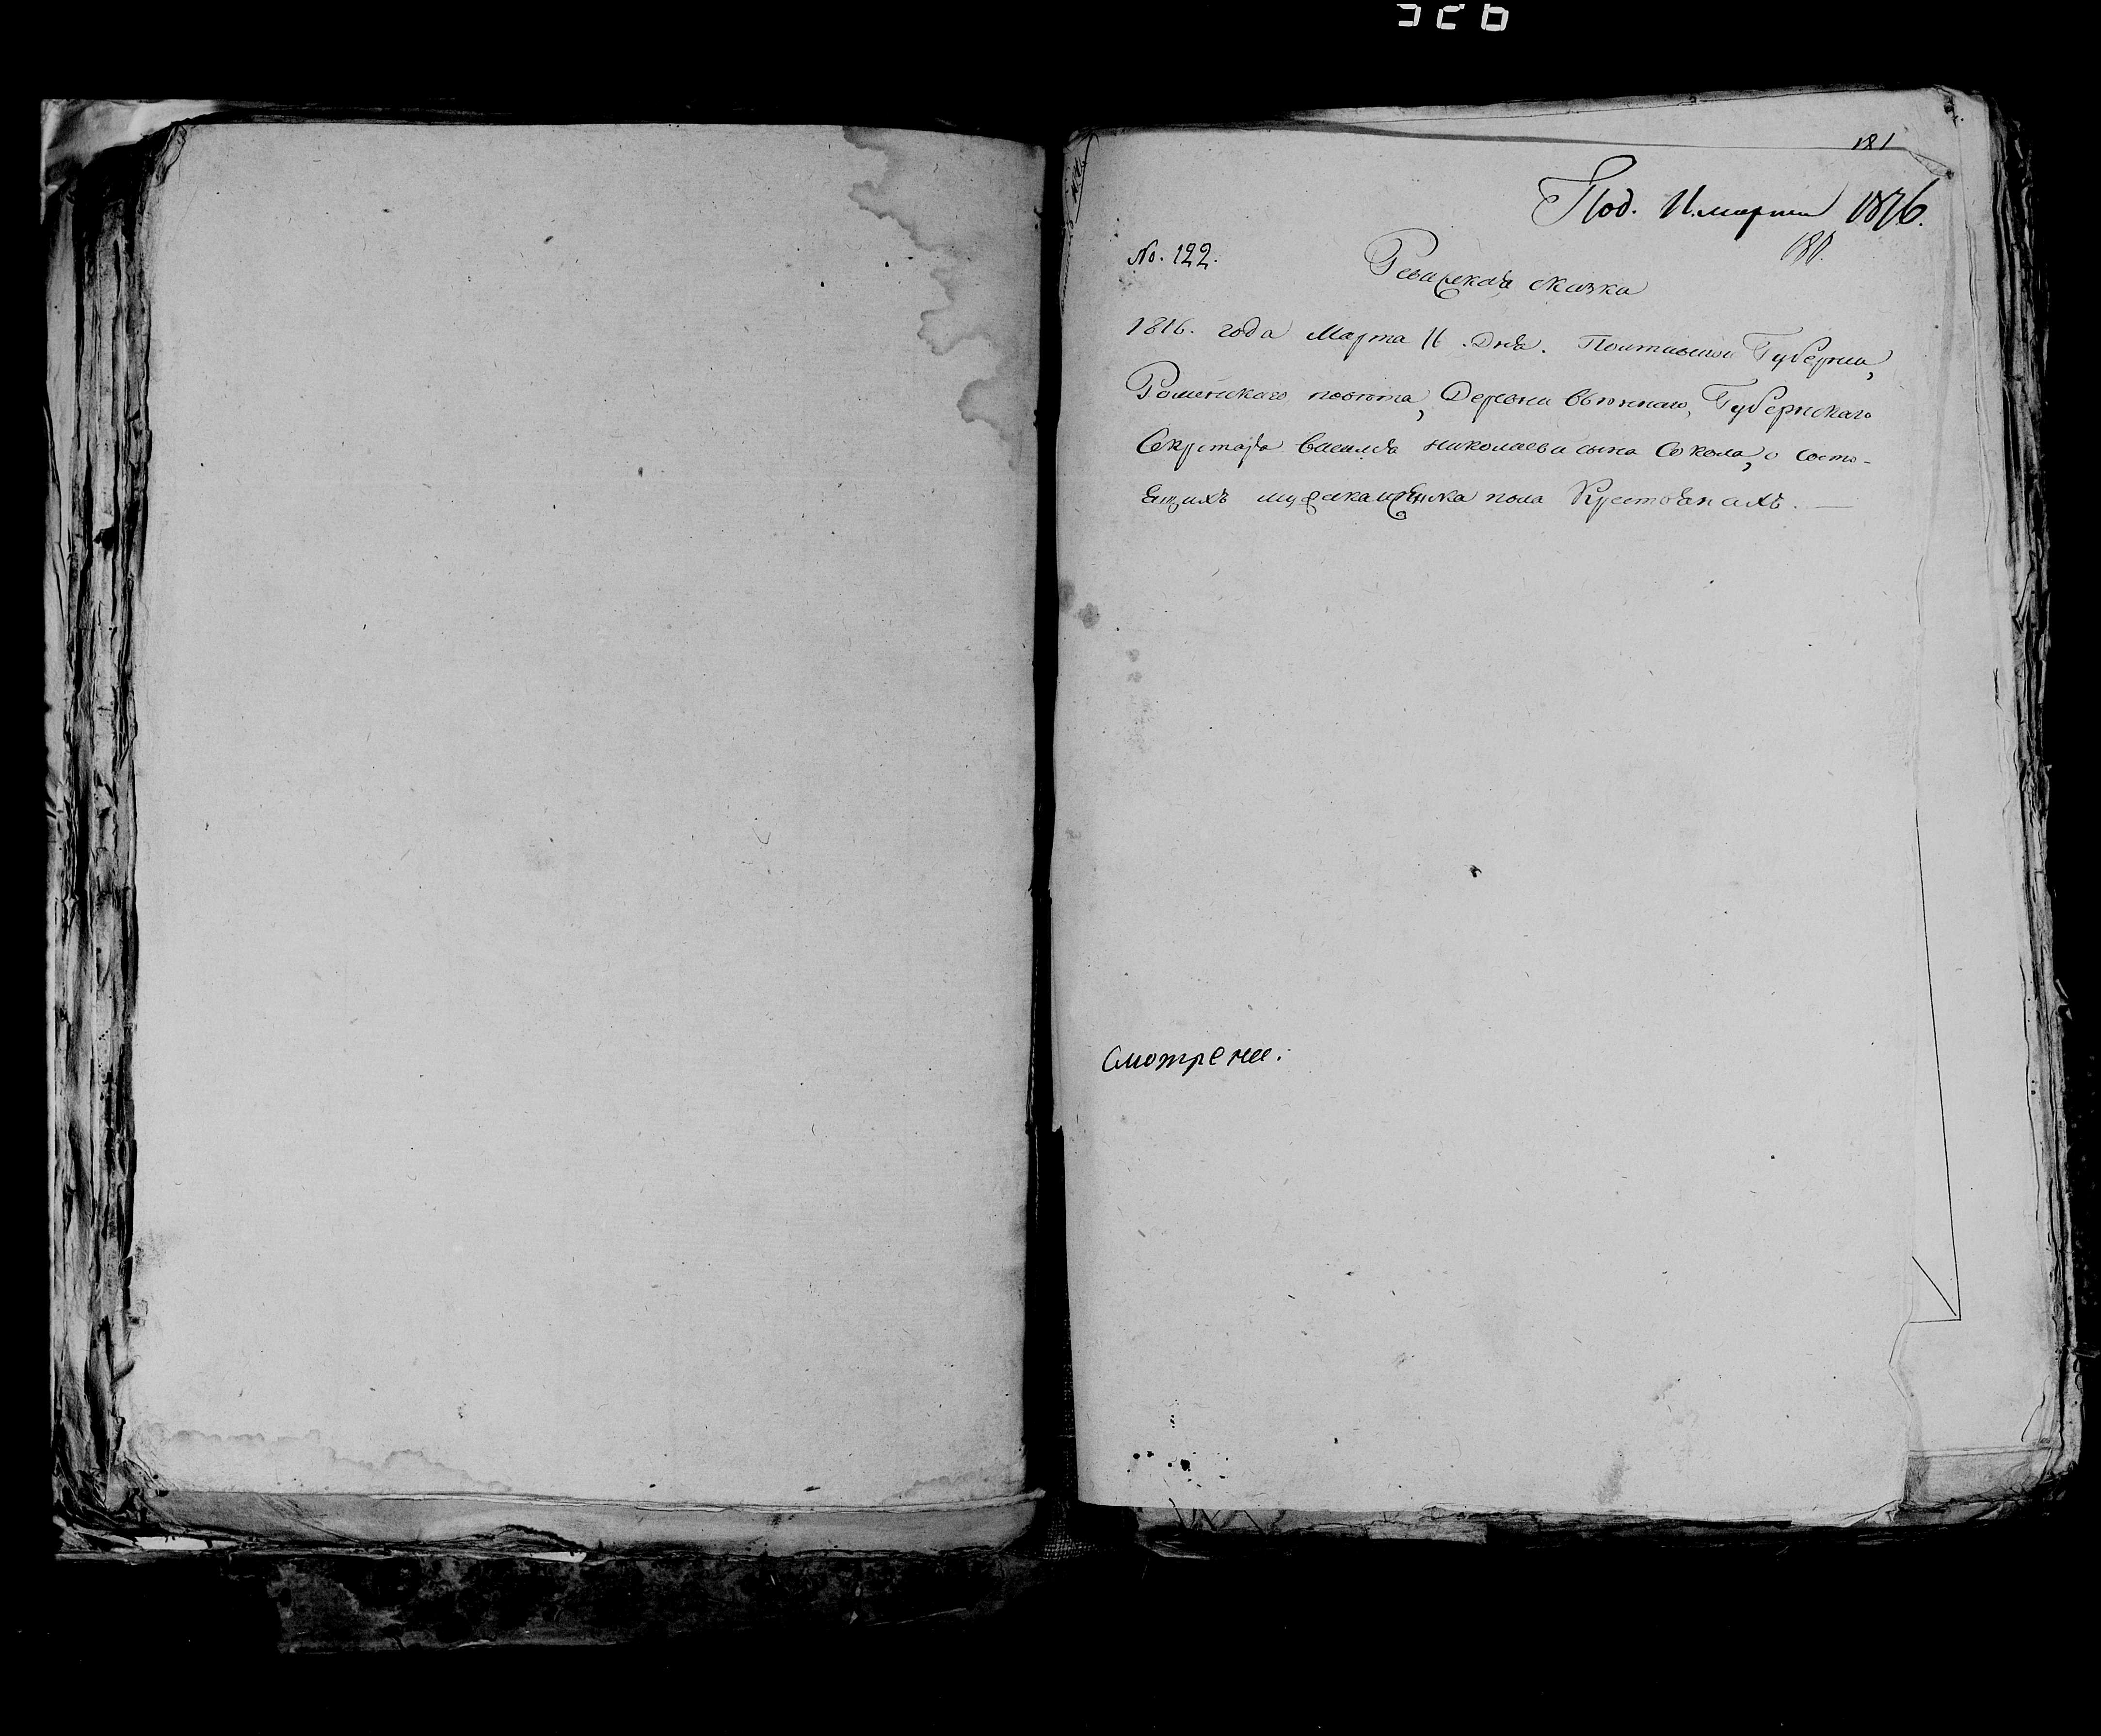 181
Под. 11. марта 1816.
180.
No. 122.
Ревизская сказка
1816. года Марта 11. дня. Полтавской Губернии,
Роменского повета, Деревни Вьюнного, Губернского
Секретаря Василя Николаева сына Сокола, о состо-
ящихъ мужска и женска пола Крестьянахъ. —
Смотрение: